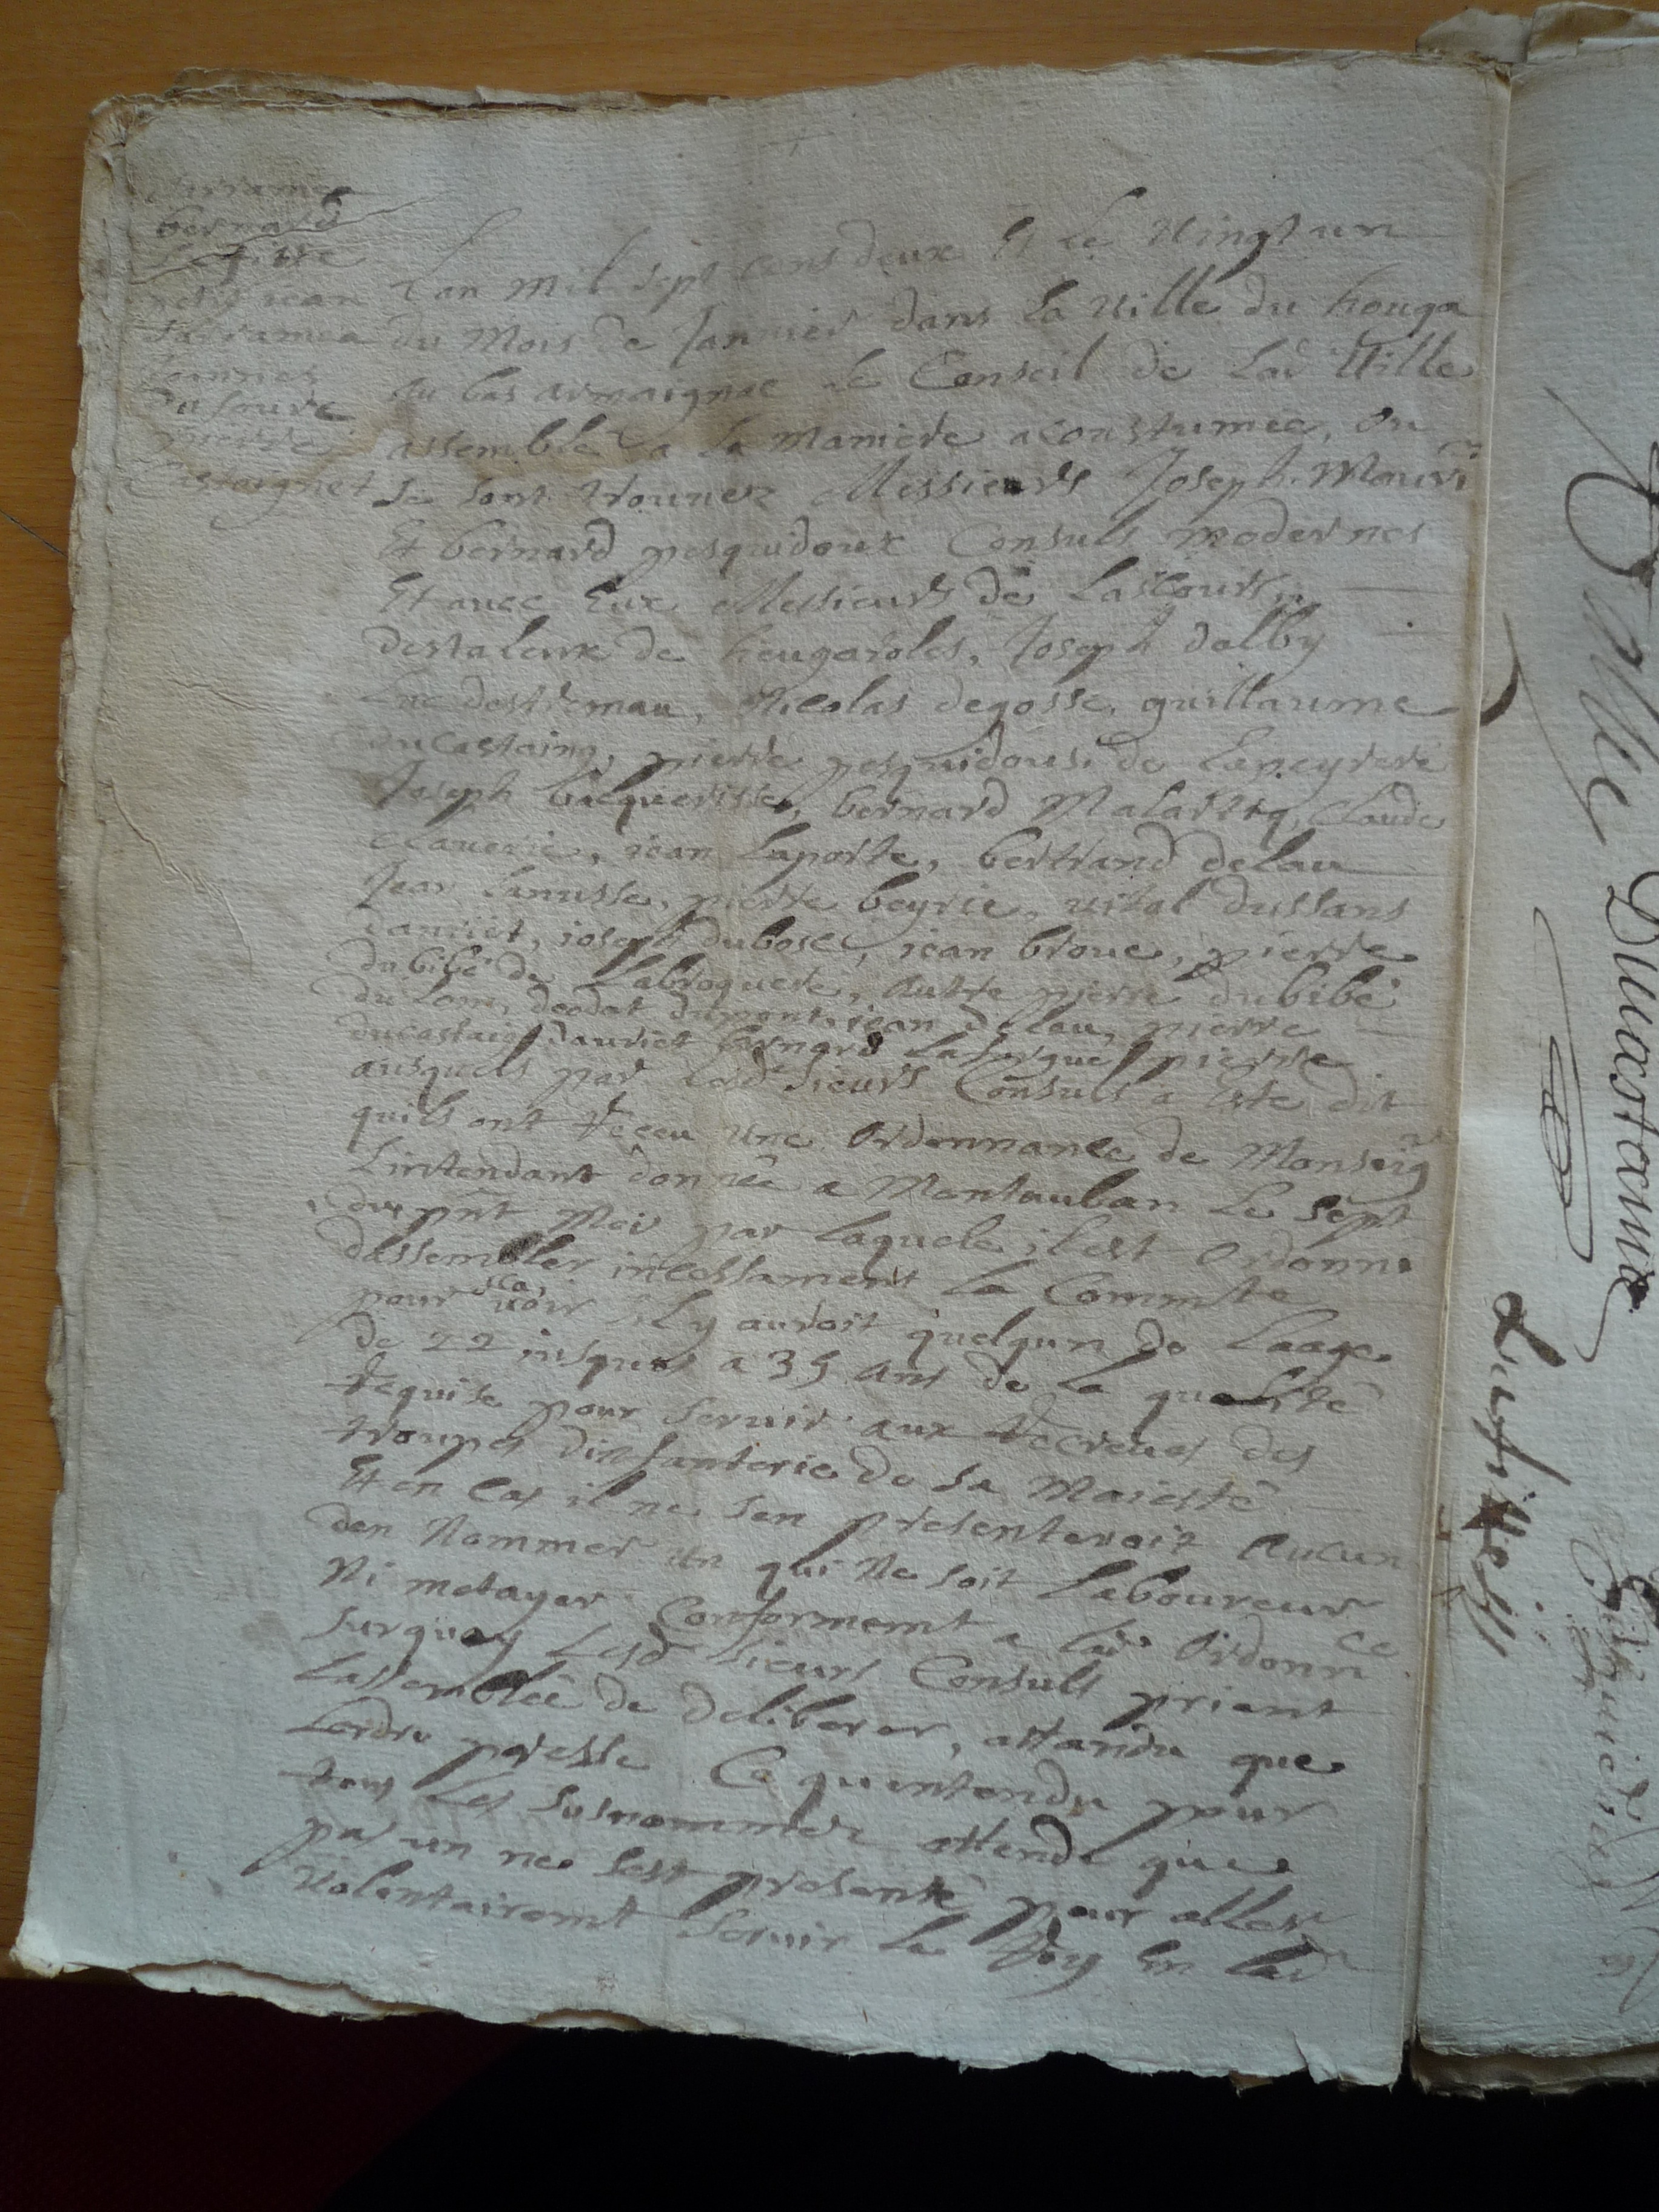 bernard
Lafitte
petit jean
darramea
Jeannes
dufourc
pierre
Castaignet
Lan mil sept cens deux Et Le Vingt un
du Mois de Januier dans La Ville du houga
au bas armaignac Le Conseil de Lad Ville
assemblé a La maniere acoustumée, Ou
se sont trouuez Messieurs Joseph Mauri
Et bernard pesquidoux Consuls modernes
Et auec Eux Messieurs de Lascours
destaleux de heugaroles, Joseph dalby
Luc destremau, Nicolas degosse, guillaume
ducastaing, pierre pesquidoux de Lapeyrere
Joseph bacquerisse, bernard Malartiq, Claude
Clauerie, jean Laporte, bertrand delau
Jean Lanusse, pierre beyrie, vital dussans
dauriet, joseph dubosc, jean broue, pierre
dubibé de Labroquere, Autre pierre dubibé
du Lom, deodat dumont, jean delau, pierre
ducastaig dauriet bernard Lafargue pierre
ausquels par Lesd Sieurs Consuls a Esté dit
quils ont Receu une Ordonnance de Monseigr
Lintendant donnée a Montauban Le sept
du pñt Mois par Laquele il est Ordonné
dassembler incessament La Commte
pour voir sil y auroit quelqun de Laage
de 22 jusques a 35 ans de la qualité
Requise pour Seruir aux Recreues des
troupes dinfanterie de Sa Maiesté
Et en Cas il ne sen presenteroit Aucun
den Nommer un qui Ne soit Laboureur
Ni metayer Conformemt a Lad Ordonnce
Surquoy Lesd Sieurs Consuls prient
Lassemblée de deliberer, attandu que
Lordre presse Ce quentendu pour
tous Les susnommez attendu que
pas un ne sest presenté pour aller
Volontairemt Seruir Le Roy En Lad
Ville
Ducastaing
Lafitte